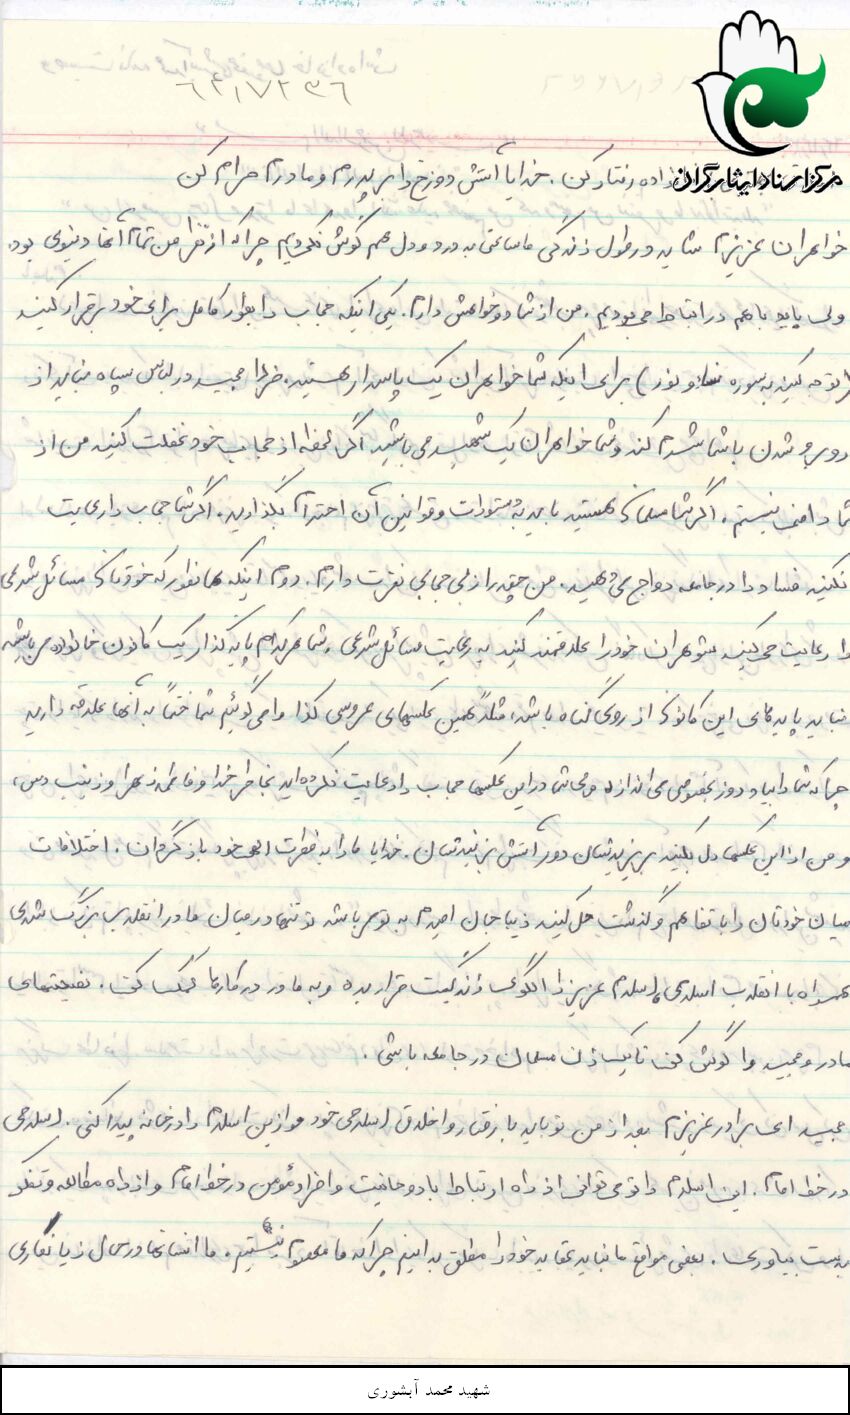 ۶۲/۷/۲۳۶
مرکز اسناد ایثارگران
رفتار کن. خدایا آتش دوزخ را بر پدرم و مادرم حرام کن
خواهران عزیزم شاید در طول زندگی ما ساعتی به درد و دل هم گوش نکردیم چرا که از نظر من تمام آنها دنیوی بود.
ولی باید با هم در ارتباط می‌بودیم. من از شما دو خواهش دارم. یکی اینکه حجاب را بطور کامل برای خود برقرار کنید
(توجه کنید به سوره نساء و نور) برای اینکه شما خواهران یک پاسدار هستید. فردا مجید در لباس سپاه نباید از
روبرو شدن با شما شرم کند و شما خواهران یک شهید می‌باشید اگر لحظه‌ای از حجاب خود غفلت کنید من از
شما راضی نیستم. اگر شما مسلمان هستید باید به دستورات و قوانین آن احترام بگذارید. اگر شما حجاب را رعایت
نکنید فساد را در جامعه رواج می‌دهید. من چقدر از بی حجابی نفرت دارم. دوم اینکه همانطور که خودتان مسائل شرعی
را رعایت می‌کنید شوهران خود را علاقمند کنید به رعایت مسائل شرعی. شما هر کدام پایه گذار یک کانون خانواده می‌باشید
نباید پایه‌های این کانون از روی گناه باشد، مثلاً همین عکسهای عروسی کذا و می‌گوئیم شما حتماً به آنها علاقه دارید
چرا که شما را بیاد روز بخصوصی می‌اندازد ولی شما در این عکسها حجاب را رعایت نکرده‌اید بخاطر خدا و فاطمه زهرا و زینب (س)
و من از این عکسها دل بکنید بریزیدشان دور آتش بزنیدشان. خدایا ما را به فطرت الهی خود بازگردان. اختلافات
میان خودتان را با تفاهم و گذشت حل کنید زیبا جان امیدم به تو می‌باشد تو تنها در میان ما در انقلاب بزرگ شدی
همراه با انقلاب اسلامی، اسلام عزیز را الگوی زندگیت قرار بده و به مادر در کارها کمک کن. نصیحتهای
مادر و مجید را گوش کن تا یک زن مسلمان در جامعه باشی.
مجید ای برادر عزیزم بعد از من تو باید با رفتار و اخلاق اسلامی خود موازین اسلام را در خانه پیدا کنی. اسلامی
در خط امام. این اسلام را تو می‌توانی از راه ارتباط با روحانیت و افراد مؤمن در خط امام و از راه مطالعه و تفکر
بدست بیاوری. بعضی مواقع ما نباید عقاید خود را مطلق بدانیم چرا که ما معصوم نیستیم. ما انسانها در
شهید محمد آبشوری